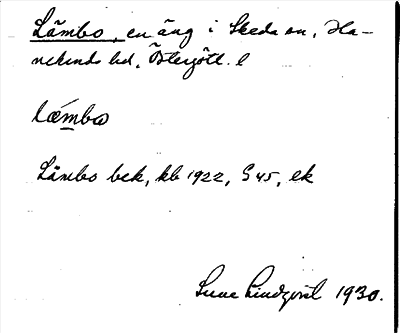 Lämbo, en äng i Skeda sn, Ha-
nekinds hd, Östergötl. l
lǽmbω
Lämbo bck, kb 1922, S 45, ek
Sune Lindqvist 1930.